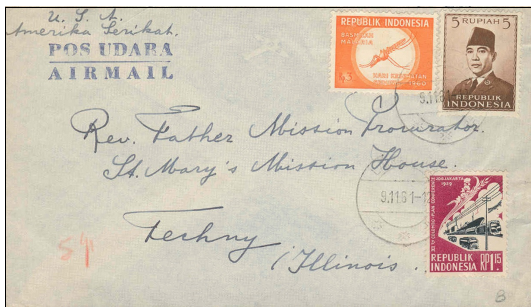 U. S. A.
Amerika Serikat.
POS UDARA
AIRMAIL
REPUBLIK INDONESIA
BASMILAH
MALARIA
HARI KESEHATAN
1960
5 RUPIAH 5
REPUBLIK
INDONESIA
9.11.61
Rev. Father Mission Procurator.
St. Mary's Mission House.
Techny
(Illinois.)
9.11.61-12
1959
REPUBLIK
INDONESIA
RP1.15
B